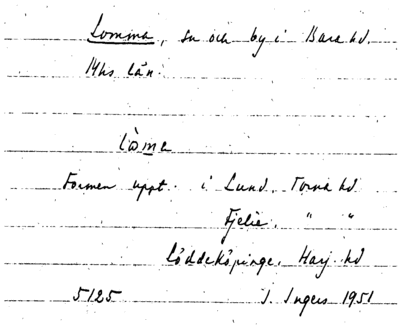 Lomma, sn och by i Bara hd.
Mhs län.
lòme
Formen uppt. i Lund, Torna hd
Fjelie, " "
Löddeköpinge, Harj. hd
5125 I. Ingers 1951